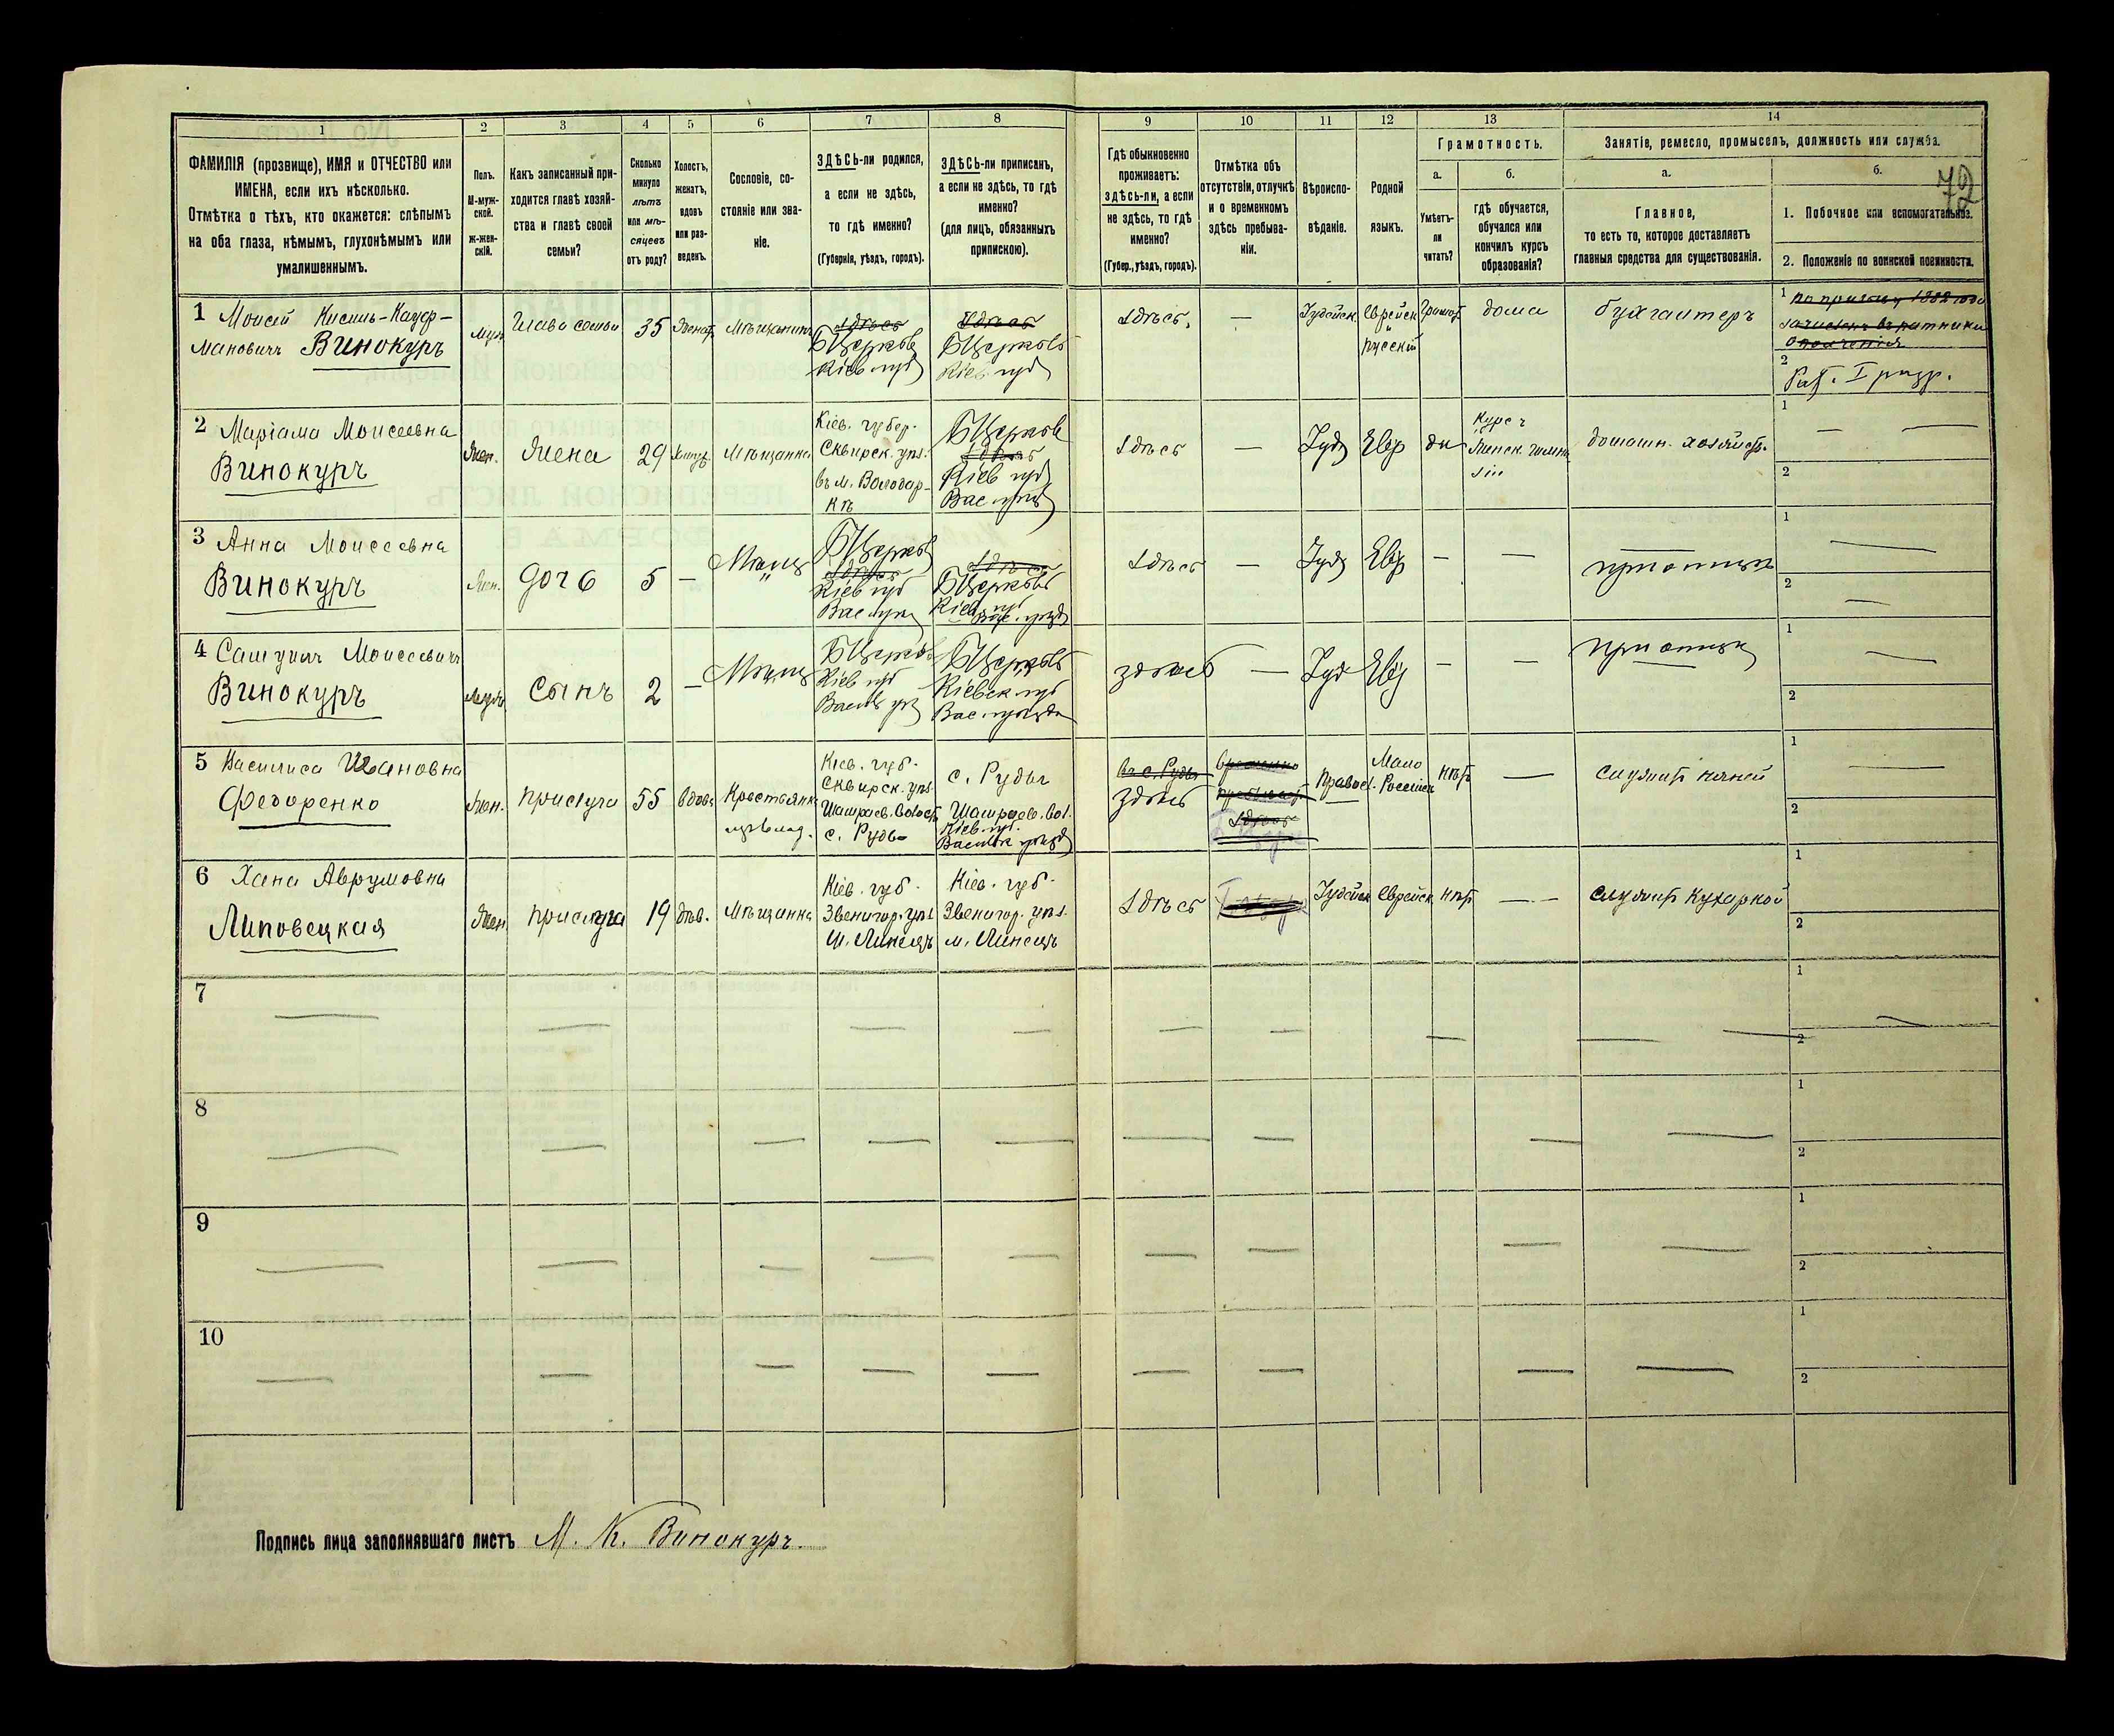 1 2 3 4 5 6 7 8 9 10 11 12 13 14
ФАМИЛІЯ (прозвище), ИМЯ и ОТЧЕСТВО или
ИМЕНА, если ихъ нѣсколько.
Отмѣтка о тѣхъ, кто окажется: слѣпымъ
на оба глаза, нѣмымъ, глухонѣмымъ или
умалишеннымъ.
Полъ.
М-муж-
ской.
Ж-жен-
скій.
Какъ записанный при-
ходится главѣ хозяй-
ства и главѣ своей
семьи?
Сколько
минуло
лѣтъ
или мѣ-
сяцевъ
отъ роду?
Холостъ,
женатъ,
вдовъ
или раз-
веденъ.
Сословіе, со-
стояніе или зва-
ніе.
ЗДѢСЬ-ли родился,
а если не здѣсь,
то гдѣ именно?
(Губернія, уѣздъ, городъ).
ЗДѢСЬ-ли приписанъ,
а если не здѣсь, то гдѣ
именно?
(для лицъ, обязанныхъ
припискою).
Гдѣ обыкновенно
проживаетъ:
здѣсь-ли, а если
не здѣсь, то гдѣ
именно?
(Губер., уѣздъ, городъ).
Отмѣтка объ
отсутствіи, отлучкѣ
и о временномъ
здѣсь пребыва-
ніи.
Вѣроиспо-
вѣданіе.
Родной
языкъ.
Грамотность.
а.
Умѣетъ-
ли
читать?
б.
гдѣ обучается,
обучался или
кончилъ курсъ
образованія?
Занятіе, ремесло, промыселъ, должность или служба.
а.
Главное,
то есть то, которое доставляетъ
главныя средства для существованія.
б.
72
1. Побочное или вспомогательное.
2. Положеніе по воинской повинности.
1 Моисей Кисиль-Кауф-
мановичъ Винокуръ
муж
Глава семьи
35
женат
Мѣщанинъ
здѣсь
БЦерковь
Кіев. губ
здѣсь
БЦерковь
Кіев. губ
здѣсь.
—
Іудейск
Еврейск
и
русскій
Грамот
дома
бухгалтеръ
1 по призыву 1882 года
зачисленъ въ ратники
ополченія
2 Рат. I разр.
2 Маріама Моисеевна
Винокуръ
жен.
жена
29
замуж.
Мѣщанка
Кіев. губер.
Сквирск. уѣз.
въ м. Володар-
кѣ
БЦерковь
здѣсь
Кіев губ
Вас. уѣзд
здѣсь
—
Іуд
Евр
да
Курсъ
женск. гимна
зіи
домашн. хозяйст.
1 — —
2
3 Анна Моисеевна
Винокуръ
жен.
дочь
5
—
Мѣщ
БЦерковь
здѣсь
Кіев губ
Вас. уѣзд
здѣсь
БЦерковь
Кіев губ
Вас. уѣзд
здѣсь
—
Іуд
Евр
— —
при отцѣ
1 —
2 —
4 Самуилъ Моисеевичъ
Винокуръ
муж
сынъ
2
—
Мѣщ
БЦерковь
Кіев губ
Васильк уѣз
БЦерковь
Кіевск губ
Вас. уѣзда
здѣсь
—
Іуд
Евр
— —
при отцѣ
1 —
2
5 Василиса Ивановна
Федоренко
жен.
прислуга
55
вдова
Крестьянка
Кіев. губ.
Сквирск. уѣз.
Шамраев. Волост
с. Руды
с. Руды
Шамраев. Вол.
Кіев. губ.
Васильк уѣзд
въ с. Руды
здѣсь
временно
здѣсь
Правосл.
Мало
Россійск
нѣт
—
служит няней
1 —
2
6 Хана Аврумовна
Липовецкая
жен
прислуга
19
дѣв.
Мѣщанка
Кіев. губ.
Звенигор. уѣз.
м. Лисецъ
Кіев. губ.
Звенигор. уѣз.
м. Лисецъ
здѣсь
Іудейск
Еврейск
нѣт
—
служит кухаркой
1
2
7
1
2
8
1
2
9
1
2
10
1
2
Подпись лица заполнявшаго листъ М. К. Винокуръ.